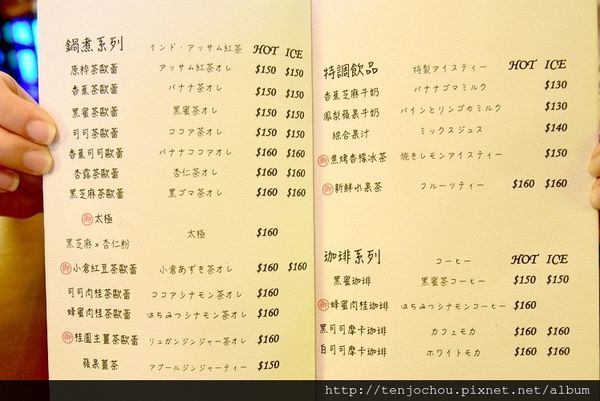 鍋煮系列 インド・アッサム紅茶 HOT ICE
原粹茶歐蕾 アッサム紅茶オレ $150 $150
香蕉茶歐蕾 バナナ茶オレ $150 $150
黑蜜茶歐蕾 黒蜜茶オレ $150 $150
可可茶歐蕾 ココア茶オレ $150 $150
香蕉可可歐蕾 バナナココア茶オレ $160 $160
杏露茶歐蕾 杏仁茶オレ $160 $160
黑芝麻茶歐蕾 黒ゴマ茶オレ $160 $160
太極
黑芝麻×杏仁粉 太極 $160
小倉紅豆茶歐蕾 小倉あずき茶オレ $160 $160
可可肉桂茶歐蕾 ココアシナモン茶オレ $160
蜂蜜肉桂茶歐蕾 はちみつシナモン茶オレ $160
桂圓生薑茶歐蕾 リュガンジンジャー茶オレ $160
蘋果薑茶 アプールジンジャーティー $150
特調飲品 特製アイスティー HOT ICE
香蕉芝麻牛奶 バナナゴマミルク $130
鳳梨蘋果牛奶 パインとリンゴのミルク $130
綜合果汁 ミックスジュス $140
焦烤香檬冰茶 焼きレモンアイスティー $150
新鮮水果茶 フルーツティー $160 $160
珈琲系列 コーヒー HOT ICE
黑蜜珈琲 黒蜜茶コーヒー $150 $150
蜂蜜肉桂珈琲 はちみつシナモンコーヒー $160
黑可可摩卡珈琲 カフェモカ $160 $160
白可可摩卡珈琲 ホワイトモカ $160 $160
http://tenjochou.pixnet.net/album